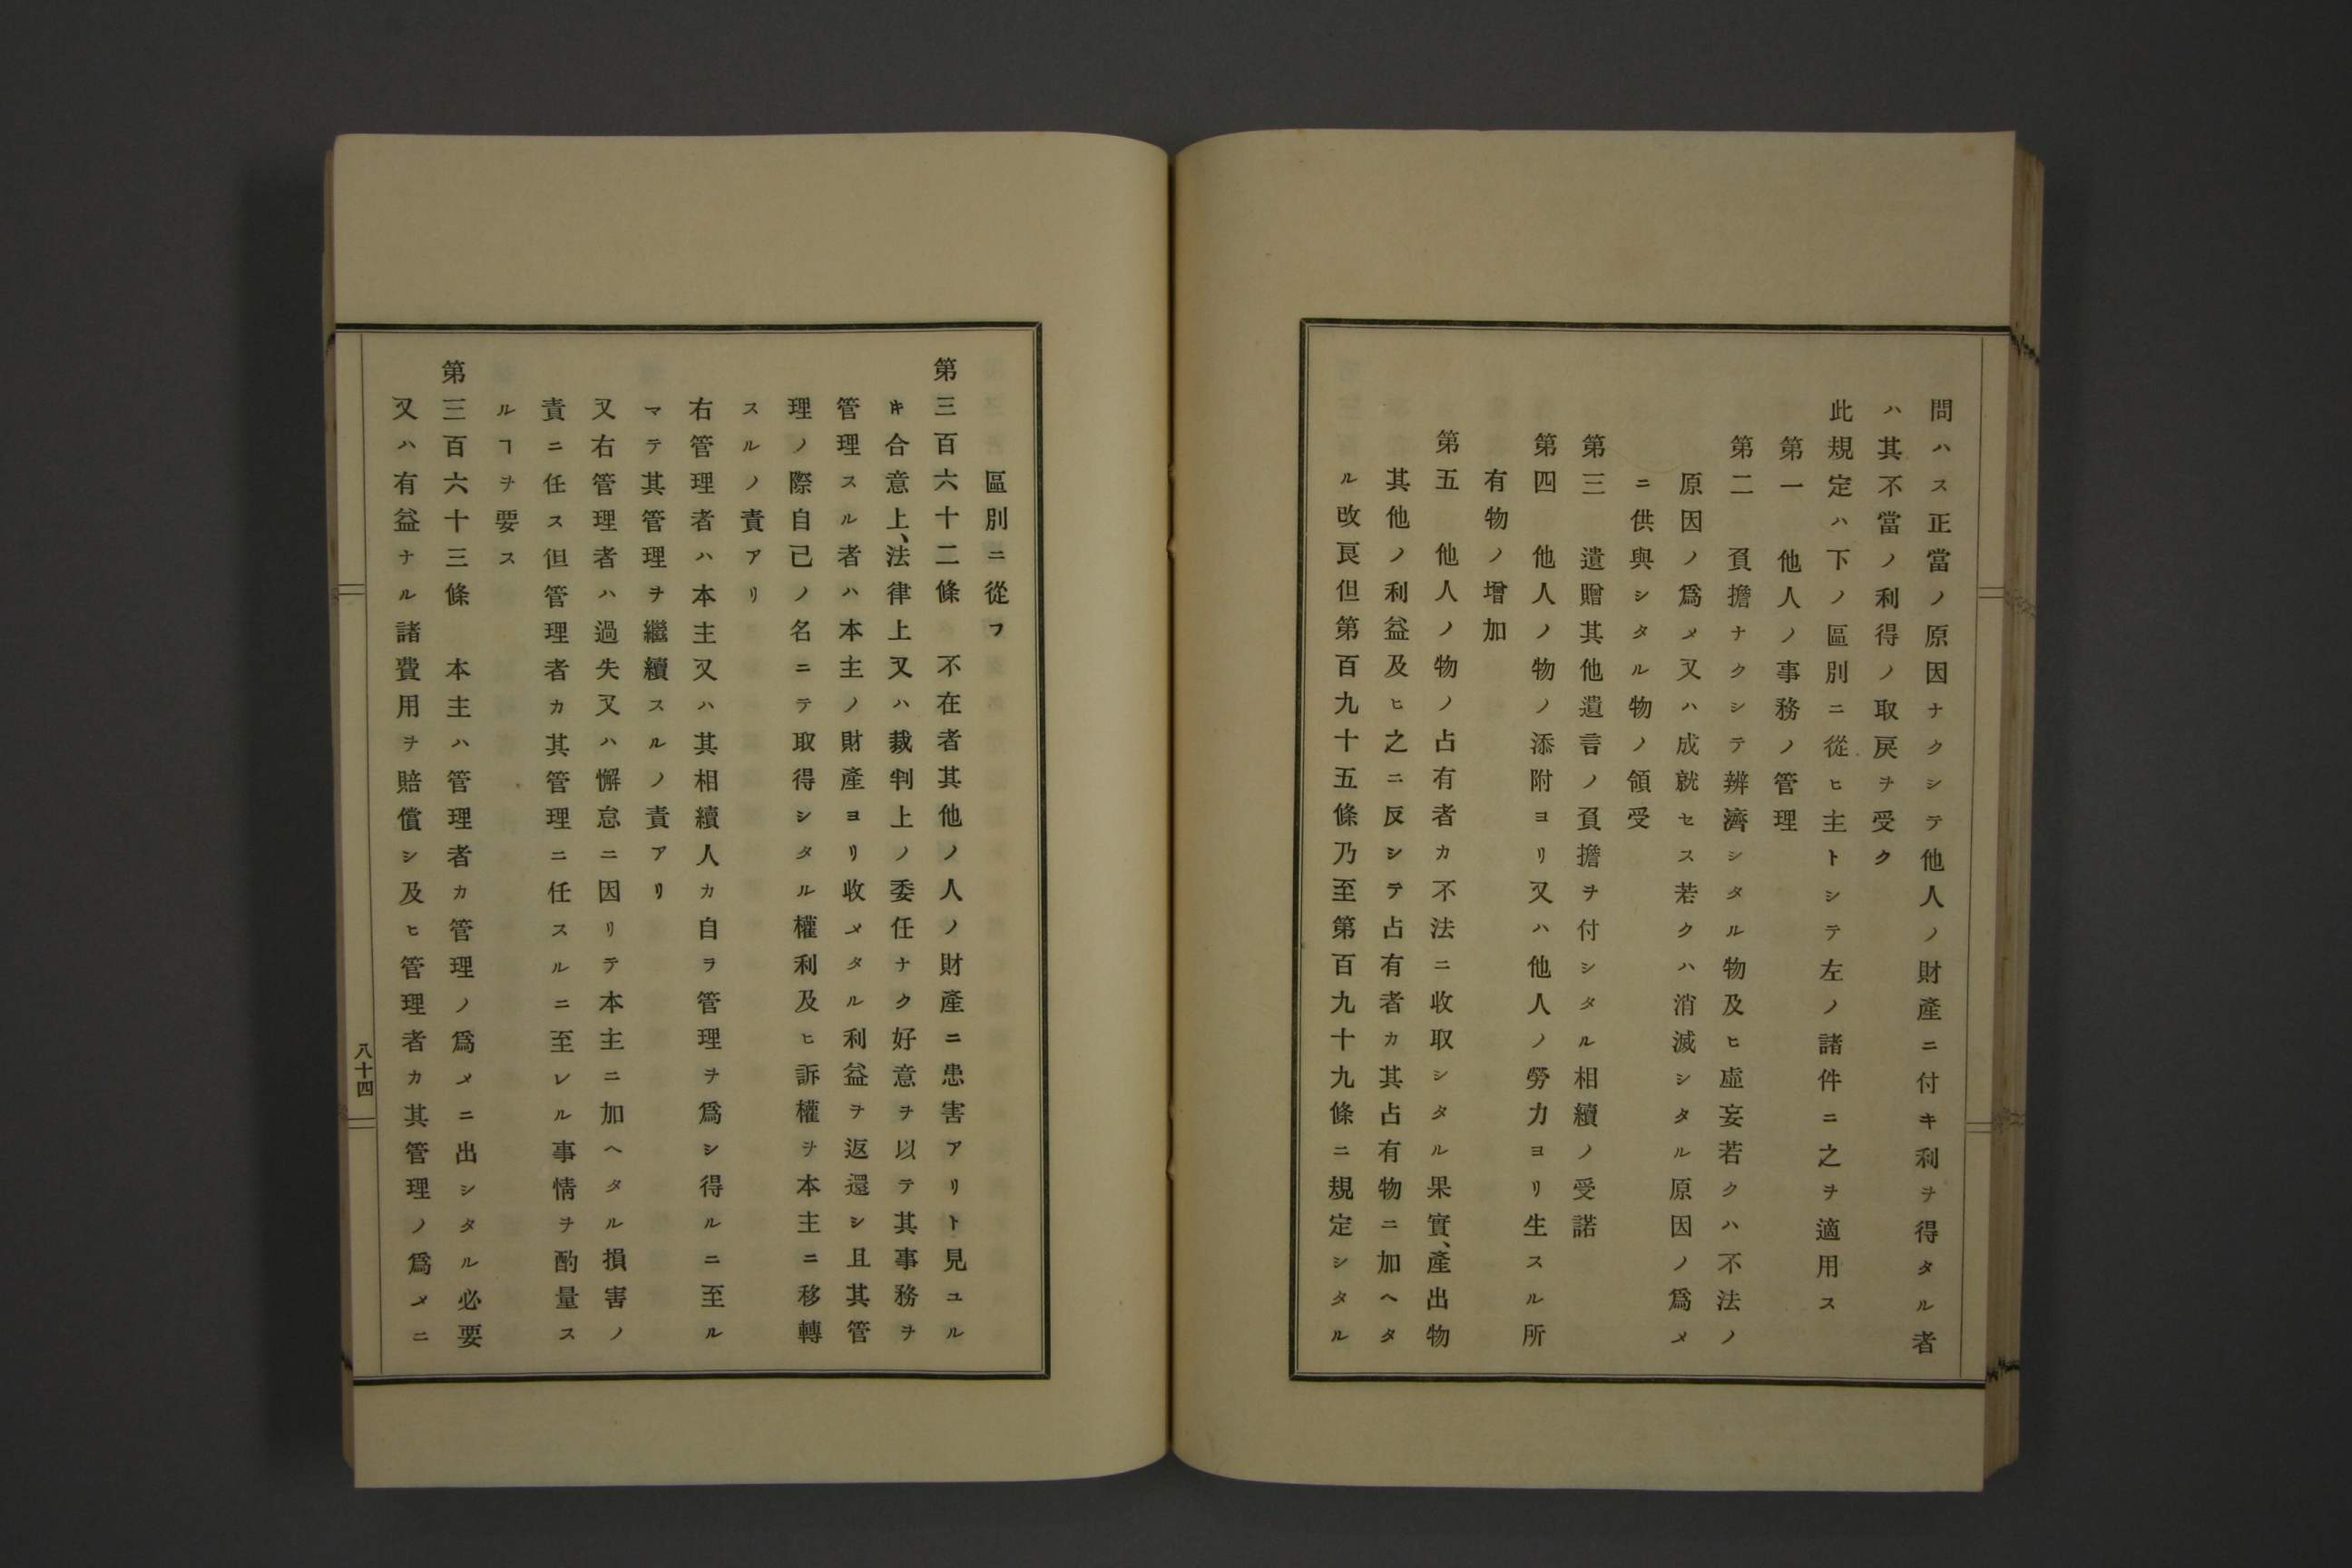 問ハス正當ノ原因ナクシテ他人ノ財產ニ付キ利ヲ得タル者
ハ其不當ノ利得ノ取戾ヲ受ク
此規定ハ下ノ區別ニ從ヒ主トシテ左ノ諸件ニ之ヲ適用ス
第一　他人ノ事務ノ管理
第二　負擔ナクシテ辨濟シタル物及ヒ虛妄若クハ不法ノ
原因ノ爲メ又ハ成就セス若クハ消滅シタル原因ノ爲メ
ニ供與シタル物ノ領受
第三　遺贈其他遺言ノ負擔ヲ付シタル相續ノ受諾
第四　他人ノ物ノ添附ヨリ又ハ他人ノ勞力ヨリ生スル所
有物ノ增加
第五　他人ノ物ノ占有者カ不法ニ收取シタル果實、產出物
其他ノ利益及ヒ之ニ反シテ占有者カ其占有物ニ加ヘタ
ル改良但第百九十五條乃至第百九十九條ニ規定シタル
區別ニ從フ
第三百六十二條　不在者其他ノ人ノ財產ニ患害アリト見ユル
キ合意上、法律上又ハ裁判上ノ委任ナク好意ヲ以テ其事務ヲ
管理スル者ハ本主ノ財產ヨリ收メタル利益ヲ返還シ且其管
理ノ際自己ノ名ニテ取得シタル權利及ヒ訴權ヲ本主ニ移轉
スルノ責アリ
右管理者ハ本主又ハ其相續人カ自ラ管理ヲ爲シ得ルニ至ル
マテ其管理ヲ繼續スルノ責アリ
又右管理者ハ過失又ハ懈怠ニ因リテ本主ニ加ヘタル損害ノ
責ニ任ス但管理者カ其管理ニ任スルニ至レル事情ヲ酌量ス
ルヿヲ要ス
第三百六十三條　本主ハ管理者カ管理ノ爲メニ出シタル必要
又ハ有益ナル諸費用ヲ賠償シ及ヒ管理者カ其管理ノ爲メニ
八十四